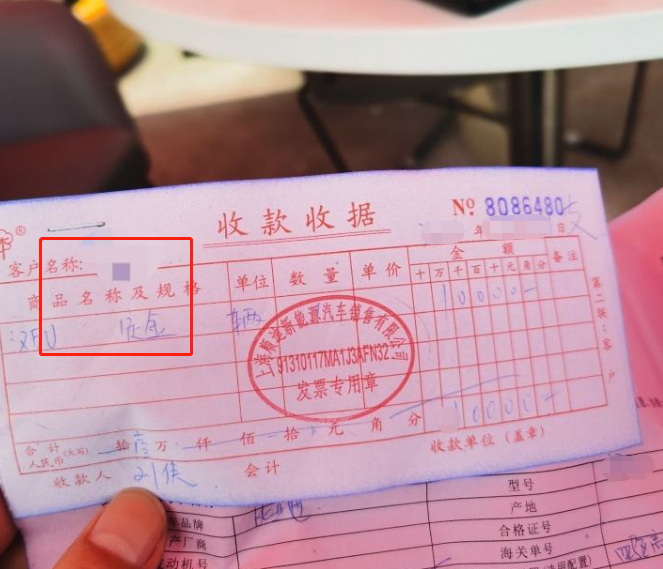 收款收据
№ 8086480
年 日
客户名称:
商品名称及规格 单位 数量 单价 金额 备注
十万千百十元角分
定金 辆 10000-
上海顺淀新能源汽车销售有限公司
91310117MA1J3AFN32
发票专用章
第二联:客户
10000-
合计人民币(大写) 拾壹万 仟 佰 拾 元 角 分
收款单位(盖章)
收款人 会计
型号
产地
车品牌 合格证号
产厂商 海关单号
动机号